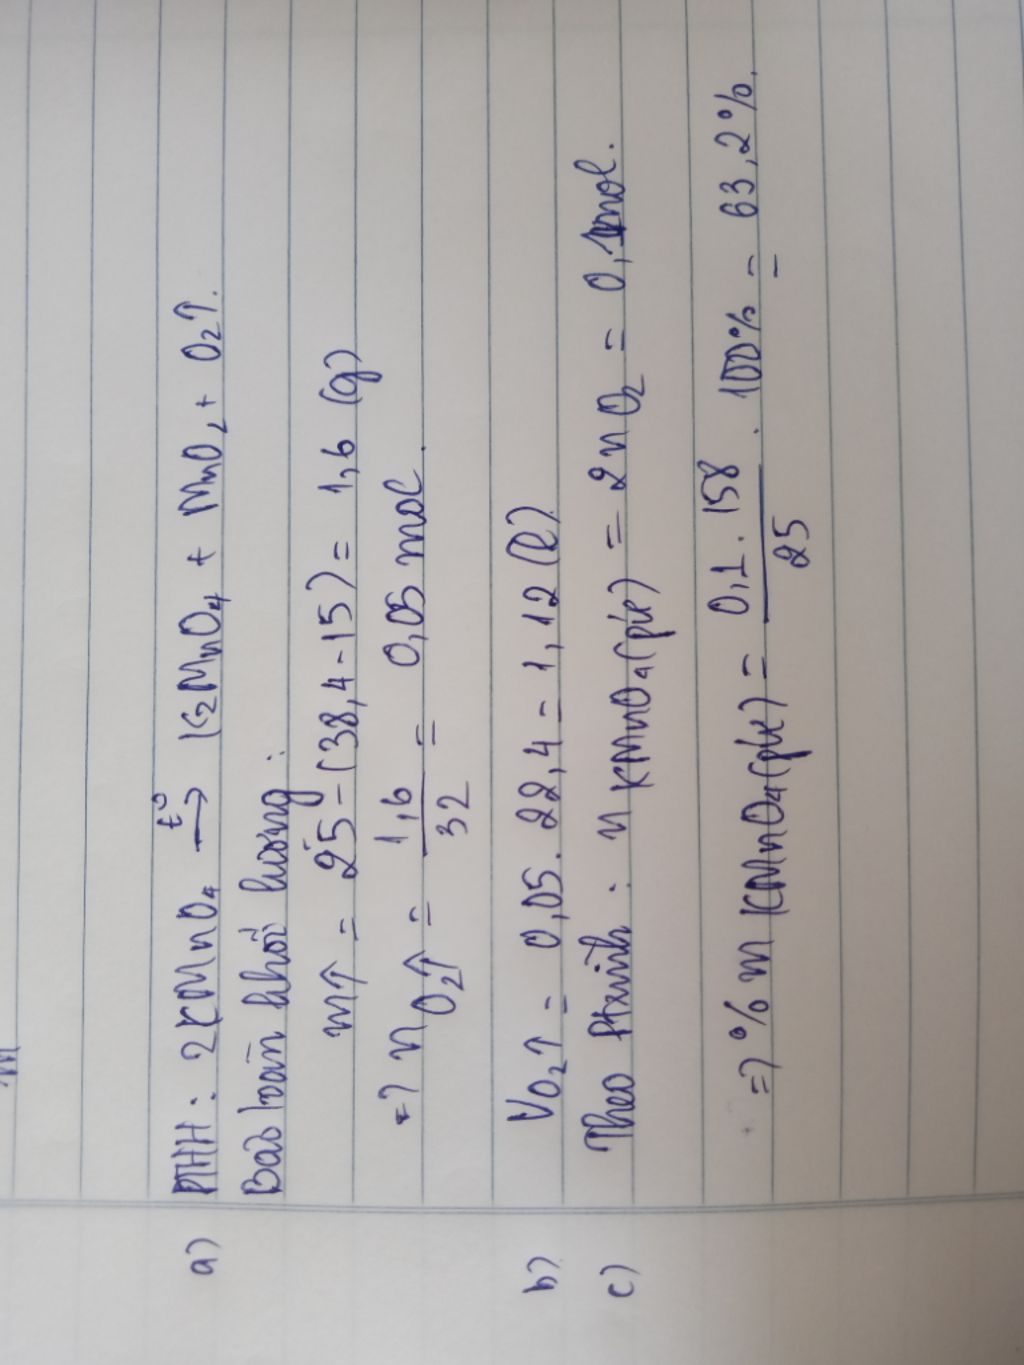 a) PTHH: 2KMnO₄ →(t°) K₂MnO₄ + MnO₂ + O₂↑.
Bảo toàn khối lượng:
m↑ = 25 - (38,4 - 15) = 1,6 (g)
=> n O₂↑ = 1,6/32 = 0,05 mol.
b) V O₂↑ = 0,05 . 22,4 = 1,12 (l)
c) Theo Ptrình: n KMnO₄(pứ) = 2nO₂ = 0,1mol.
=> % m KMnO₄(pứ) = 0,1 . 158/25 . 100% = 63,2%.